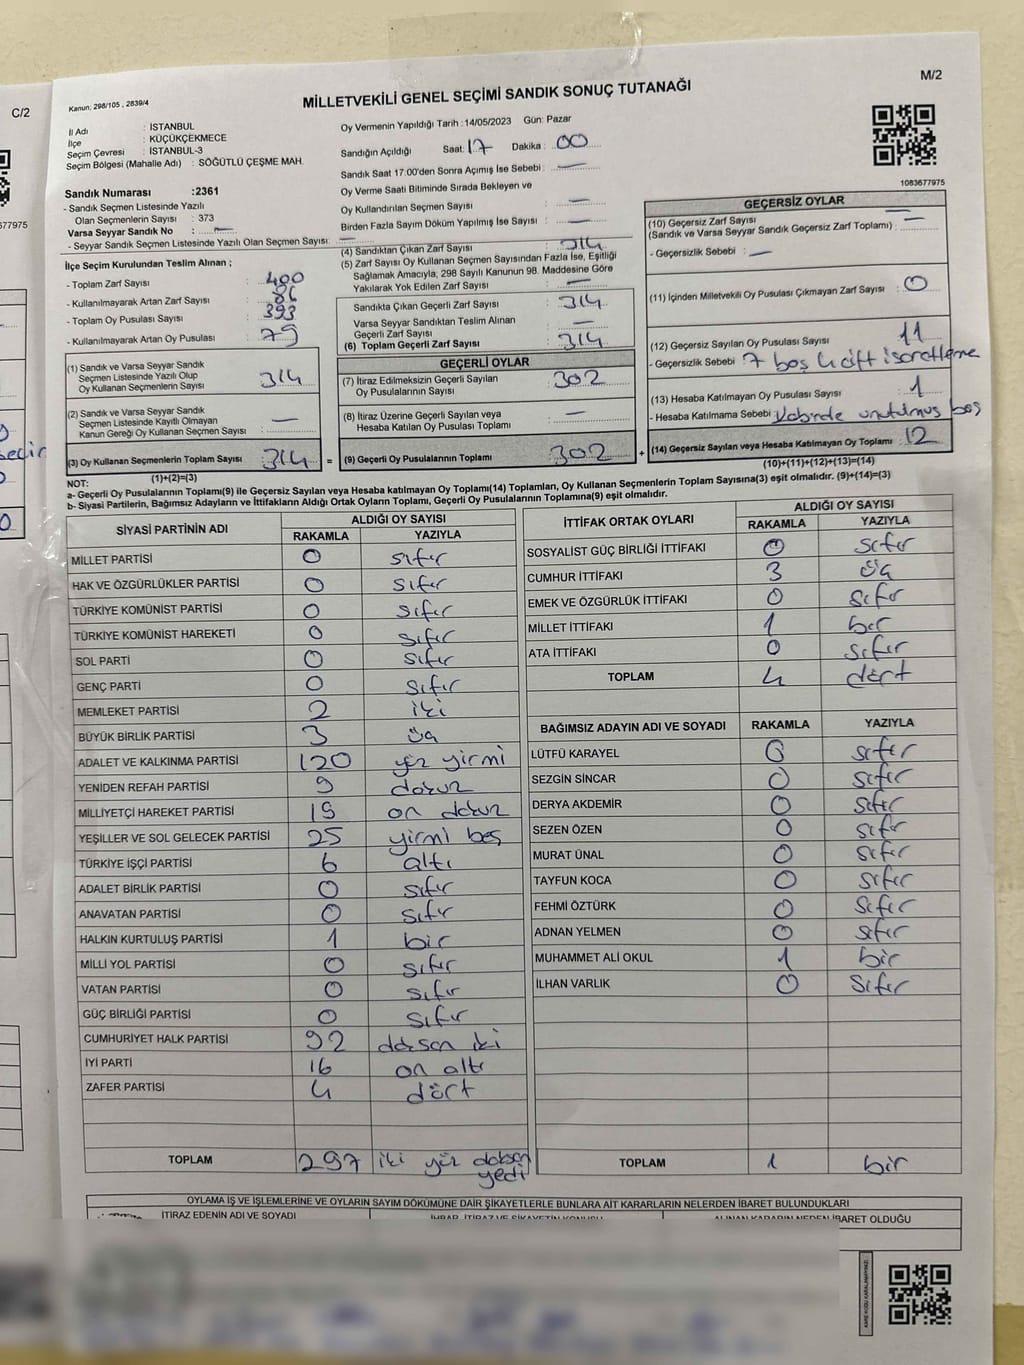 C/2
M/2
Kanun: 298/105 , 2839/4
MİLLETVEKİLİ GENEL SEÇİMİ SANDIK SONUÇ TUTANAĞI
İl Adı : İSTANBUL
İlçe : KÜÇÜKÇEKMECE
Seçim Çevresi : İSTANBUL-3
Seçim Bölgesi (Mahalle Adı) : SÖĞÜTLÜ ÇEŞME MAH.
Sandık Numarası :2361
- Sandık Seçmen Listesinde Yazılı
Olan Seçmenlerin Sayısı : 373
Varsa Seyyar Sandık No : —
- Seyyar Sandık Seçmen Listesinde Yazılı Olan Seçmen Sayısı: —
Oy Vermenin Yapıldığı Tarih :14/05/2023 Gün: Pazar
Sandığın Açıldığı Saat: 17 Dakika : 00
Sandık Saat 17:00'den Sonra Açımış İse Sebebi : —
Oy Verme Saati Bitiminde Sırada Bekleyen ve
Oy Kullandırılan Seçmen Sayısı : —
Birden Fazla Sayım Döküm Yapılmış İse Sayısı : —
1083677975
677975
İlçe Seçim Kurulundan Teslim Alınan ;
- Toplam Zarf Sayısı : 400
- Kullanılmayarak Artan Zarf Sayısı : 86
- Toplam Oy Pusulası Sayısı : 393
- Kullanılmayarak Artan Oy Pusulası : 79
(1) Sandık ve Varsa Seyyar Sandık
Seçmen Listesinde Yazılı Olup
Oy Kullanan Seçmenlerin Sayısı : 314
(2) Sandık ve Varsa Seyyar Sandık
Seçmen Listesinde Kayıtlı Olmayan
Kanun Gereği Oy Kullanan Seçmen Sayısı : —
(3) Oy Kullanan Seçmenlerin Toplam Sayısı : 314 =
(1)+(2)=(3)
(4) Sandıktan Çıkan Zarf Sayısı : 314
(5) Zarf Sayısı Oy Kullanan Seçmen Sayısından Fazla İse, Eşitliği
Sağlamak Amacıyla, 298 Sayılı Kanunun 98. Maddesine Göre
Yakılarak Yok Edilen Zarf Sayısı : —
Sandıkta Çıkan Geçerli Zarf Sayısı : 314
Varsa Seyyar Sandıktan Teslim Alınan
Geçerli Zarf Sayısı : —
(6) Toplam Geçerli Zarf Sayısı : 314
GEÇERLİ OYLAR
(7) İtiraz Edilmeksizin Geçerli Sayılan
Oy Pusulalarının Sayısı : 302
(8) İtiraz Üzerine Geçerli Sayılan veya
Hesaba Katılan Oy Pusulası Toplamı : —
(9) Geçerli Oy Pusulalarının Toplamı : 302 +
GEÇERSİZ OYLAR
(10) Geçersiz Zarf Sayısı
(Sandık ve Varsa Seyyar Sandık Geçersiz Zarf Toplamı) : —
- Geçersizlik Sebebi : —
(11) İçinden Milletvekili Oy Pusulası Çıkmayan Zarf Sayısı : 0
(12) Geçersiz Sayılan Oy Pusulası Sayısı : 11
- Geçersizlik Sebebi : 7 boş 4 çift işaretleme
(13) Hesaba Katılmayan Oy Pusulası Sayısı : 1
- Hesaba Katılmama Sebebi : Kabinde unutulmuş boş
(14) Geçersiz Sayılan veya Hesaba Katılmayan Oy Toplamı : 12
(10)+(11)+(12)+(13)=(14)
NOT:
a- Geçerli Oy Pusulalarının Toplamı(9) ile Geçersiz Sayılan veya Hesaba katılmayan Oy Toplamı(14) Toplamları, Oy Kullanan Seçmenlerin Toplam Sayısına(3) eşit olmalıdır. (9)+(14)=(3)
b- Siyasi Partilerin, Bağımsız Adayların ve İttifakların Aldığı Ortak Oyların Toplamı, Geçerli Oy Pusulalarının Toplamına(9) eşit olmalıdır.
SİYASİ PARTİNİN ADI ALDIĞI OY SAYISI
RAKAMLA YAZIYLA
MİLLET PARTİSİ 0 sıfır
HAK VE ÖZGÜRLÜKLER PARTİSİ 0 sıfır
TÜRKİYE KOMÜNİST PARTİSİ 0 sıfır
TÜRKİYE KOMÜNİST HAREKETİ 0 sıfır
SOL PARTİ 0 sıfır
GENÇ PARTİ 0 sıfır
MEMLEKET PARTİSİ 2 iki
BÜYÜK BİRLİK PARTİSİ 3 üç
ADALET VE KALKINMA PARTİSİ 120 yüz yirmi
YENİDEN REFAH PARTİSİ 9 dokuz
MİLLİYETÇİ HAREKET PARTİSİ 19 on dokuz
YEŞİLLER VE SOL GELECEK PARTİSİ 25 yirmi beş
TÜRKİYE İŞÇİ PARTİSİ 6 altı
ADALET BİRLİK PARTİSİ 0 sıfır
ANAVATAN PARTİSİ 0 sıfır
HALKIN KURTULUŞ PARTİSİ 1 bir
MİLLİ YOL PARTİSİ 0 sıfır
VATAN PARTİSİ 0 sıfır
GÜÇ BİRLİĞİ PARTİSİ 0 sıfır
CUMHURİYET HALK PARTİSİ 92 doksan iki
İYİ PARTİ 16 on altı
ZAFER PARTİSİ 4 dört
TOPLAM 297 iki yüz doksan yedi
İTTİFAK ORTAK OYLARI ALDIĞI OY SAYISI
RAKAMLA YAZIYLA
SOSYALİST GÜÇ BİRLİĞİ İTTİFAKI 0 sıfır
CUMHUR İTTİFAKI 3 üç
EMEK VE ÖZGÜRLÜK İTTİFAKI 0 sıfır
MİLLET İTTİFAKI 1 bir
ATA İTTİFAKI 0 sıfır
TOPLAM 4 dört
BAĞIMSIZ ADAYIN ADI VE SOYADI RAKAMLA YAZIYLA
LÜTFÜ KARAYEL 0 sıfır
SEZGİN SİNCAR 0 sıfır
DERYA AKDEMİR 0 sıfır
SEZEN ÖZEN 0 sıfır
MURAT ÜNAL 0 sıfır
TAYFUN KOCA 0 sıfır
FEHMİ ÖZTÜRK 0 sıfır
ADNAN YELMEN 0 sıfır
MUHAMMET ALİ OKUL 1 bir
İLHAN VARLIK 0 sıfır
TOPLAM 1 bir
OYLAMA İŞ VE İŞLEMLERİNE VE OYLARIN SAYIM DÖKÜMÜNE DAİR ŞİKAYETLERLE BUNLARA AİT KARARLARIN NELERDEN İBARET BULUNDUKLARI
İTİRAZ EDENİN ADI VE SOYADI İHBAR, İTİRAZ VE ŞİKAYETİN KONUSU ALINAN KARARIN NEDEN İBARET OLDUĞU